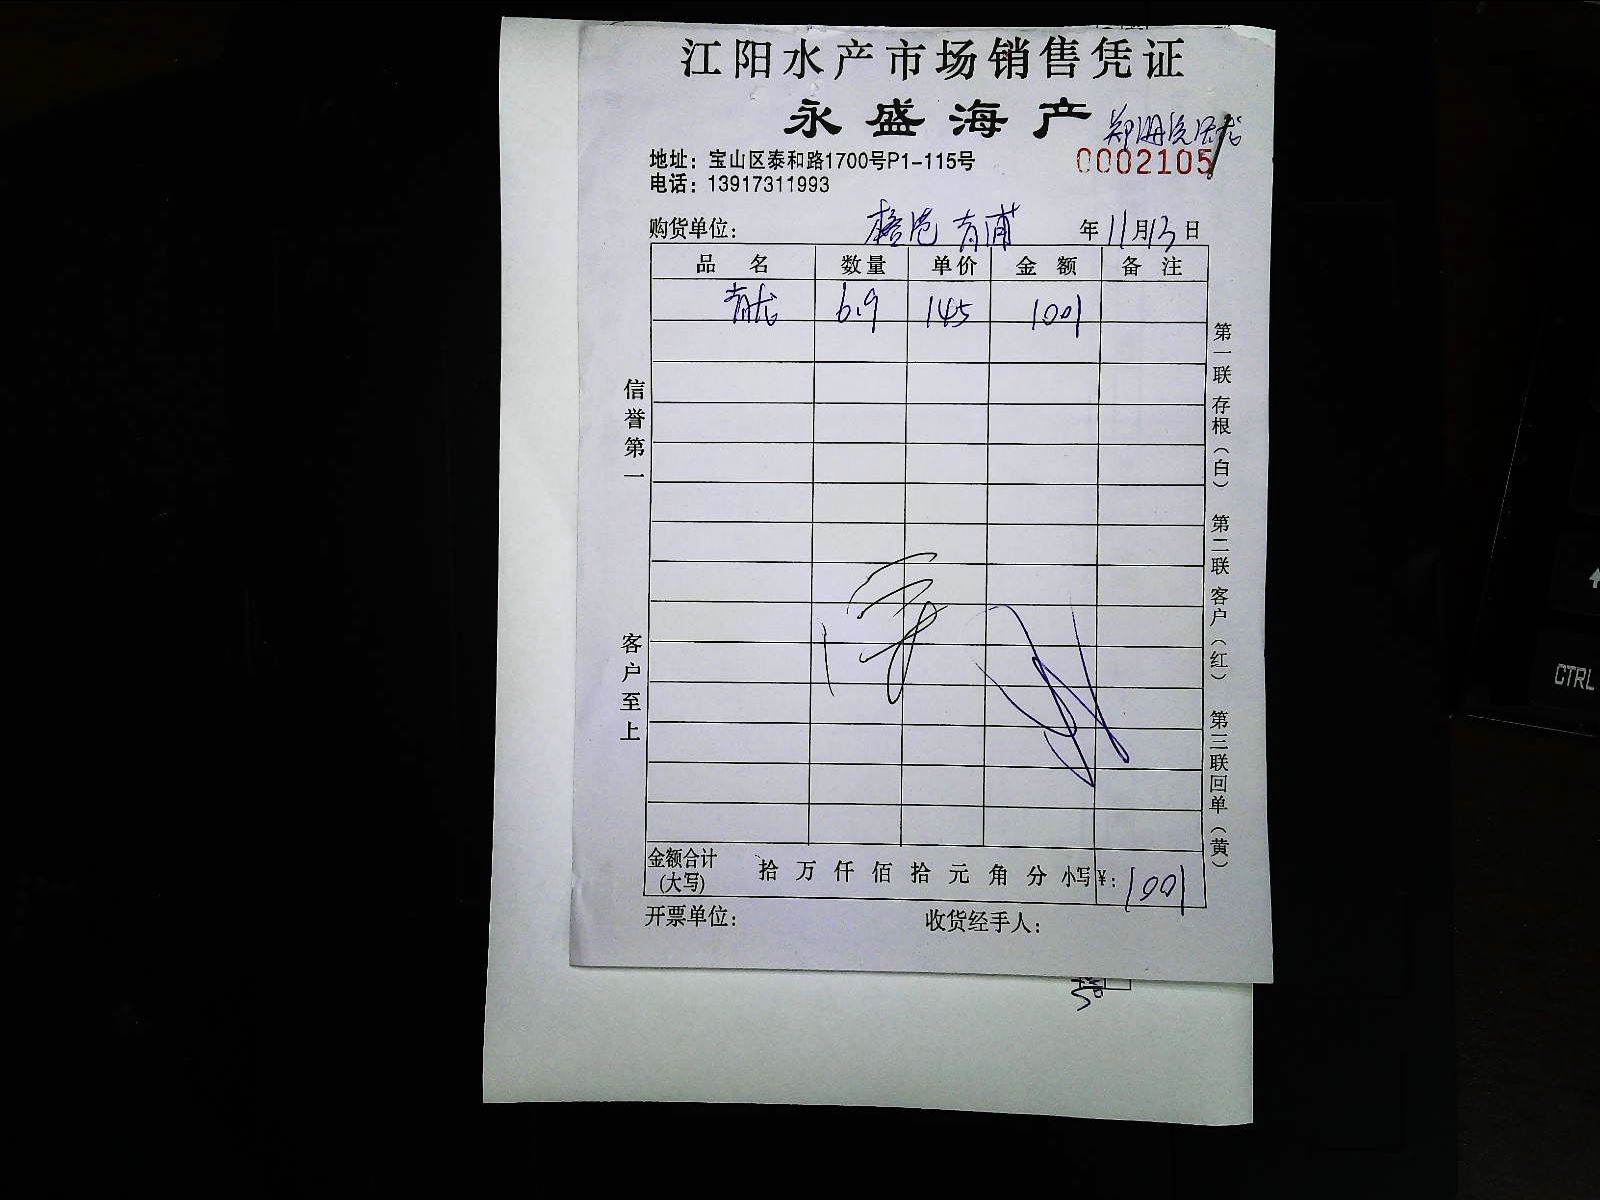 江阳水产市场销售凭证
永盛海产
地址：宝山区泰和路1700号P1-115号
0002105
电话：13917311993
购货单位： 青浦 年11月13日
品名 数量 单价 金额 备注
青龙 6.9 145 1001
信誉第一
客户至上
第一联 存根（白） 第二联 客户（红） 第三联 回单（黄）
金额合计（大写） 拾 万 仟 佰 拾 元 角 分 小写¥：1001
开票单位： 收货经手人：
CTRL